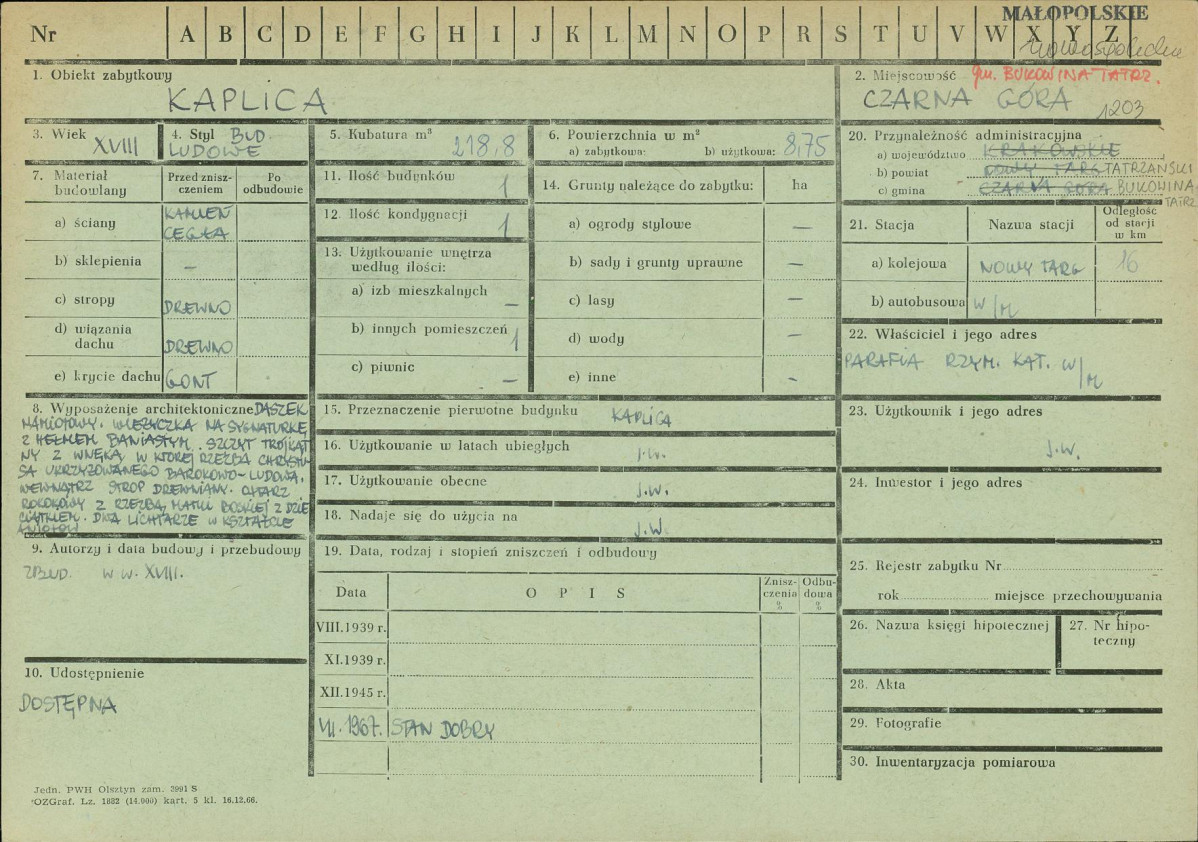 MAŁOPOLSKIE
Nr A B C D E F G H I J K L M N O P R S T U V W X Y Z
1. Obiekt zabytkowy
KAPLICA
2. Miejscowość gm. BUKOWINA TATRZ.
CZARNA GÓRA 1203
3. Wiek
XVIII
4. Styl BUD.
LUDOWE
5. Kubatura m³
218,8
6. Powierzchnia w m²
a) zabytkowa: b) użytkowa: 8,75
7. Materiał budowlany
Przed znisz-
czeniem
Po
odbudowie
a) ściany KAMIEŃ
CEGŁA
b) sklepienia —
c) stropy DREWNO
d) wiązania
dachu DREWNO
e) krycie dachu GONT
8. Wyposażenie architektoniczne DASZEK
NAMIOTOWY. WIEŻYCZKA NA SYGNATURKĘ
Z HEŁMEM BANIASTYM. SZCZYT TRÓJKĄT
NY Z WNĘKĄ, W KTÓREJ RZEŹBA CHRYSTU-
SA UKRZYŻOWANEGO BAROKOWO-LUDOWA.
WEWNĄTRZ STROP DREWNIANY. OŁTARZ
ROKOKOWY Z RZEŹBĄ MATKI BOSKIEJ Z DZIE
CIĄTKIEM. DWA LICHTARZE W KSZTAŁCIE
ANIOŁÓW
9. Autorzy i data budowy i przebudowy
ZBUD. W W. XVIII.
10. Udostępnienie
DOSTĘPNA
11. Ilość budynków 1
12. Ilość kondygnacji 1
13. Użytkowanie wnętrza
według ilości:
a) izb mieszkalnych —
b) innych pomieszczeń 1
c) piwnic —
14. Grunty należące do zabytku: ha
a) ogrody stylowe —
b) sady i grunty uprawne —
c) lasy —
d) wody —
e) inne -
15. Przeznaczenie pierwotne budynku KAPLICA
16. Użytkowanie w latach ubiegłych j.w.
17. Użytkowanie obecne j.w.
18. Nadaje się do użycia na j.w.
19. Data, rodzaj i stopień zniszczeń i odbudowy
Data O P I S Znisz-
czenia
% Odbu-
dowa
%
VIII.1939 r.
XI.1939 r.
XII.1945 r.
VII.1967. STAN DOBRY
20. Przynależność administracyjna
a) województwo KRAKOWSKIE
b) powiat NOWY TARG TATRZAŃSKI
c) gmina CZARNA GÓRA BUKOWINA
TATRZ
21. Stacja Nazwa stacji Odległość
od stacji
w km
a) kolejowa NOWY TARG 16
b) autobusowa W/M
22. Właściciel i jego adres
PARAFIA RZYM. KAT. W/M
23. Użytkownik i jego adres
j.w.
24. Inwestor i jego adres
25. Rejestr zabytku Nr
rok miejsce przechowywania
26. Nazwa księgi hipotecznej
27. Nr hipo-
teczny
28. Akta
29. Fotografie
30. Inwentaryzacja pomiarowa
Jedn. PWH Olsztyn zam. 3991 S
OZGraf. Lz. 1882 (14.000) kart. 5 kl. 16.12.66.